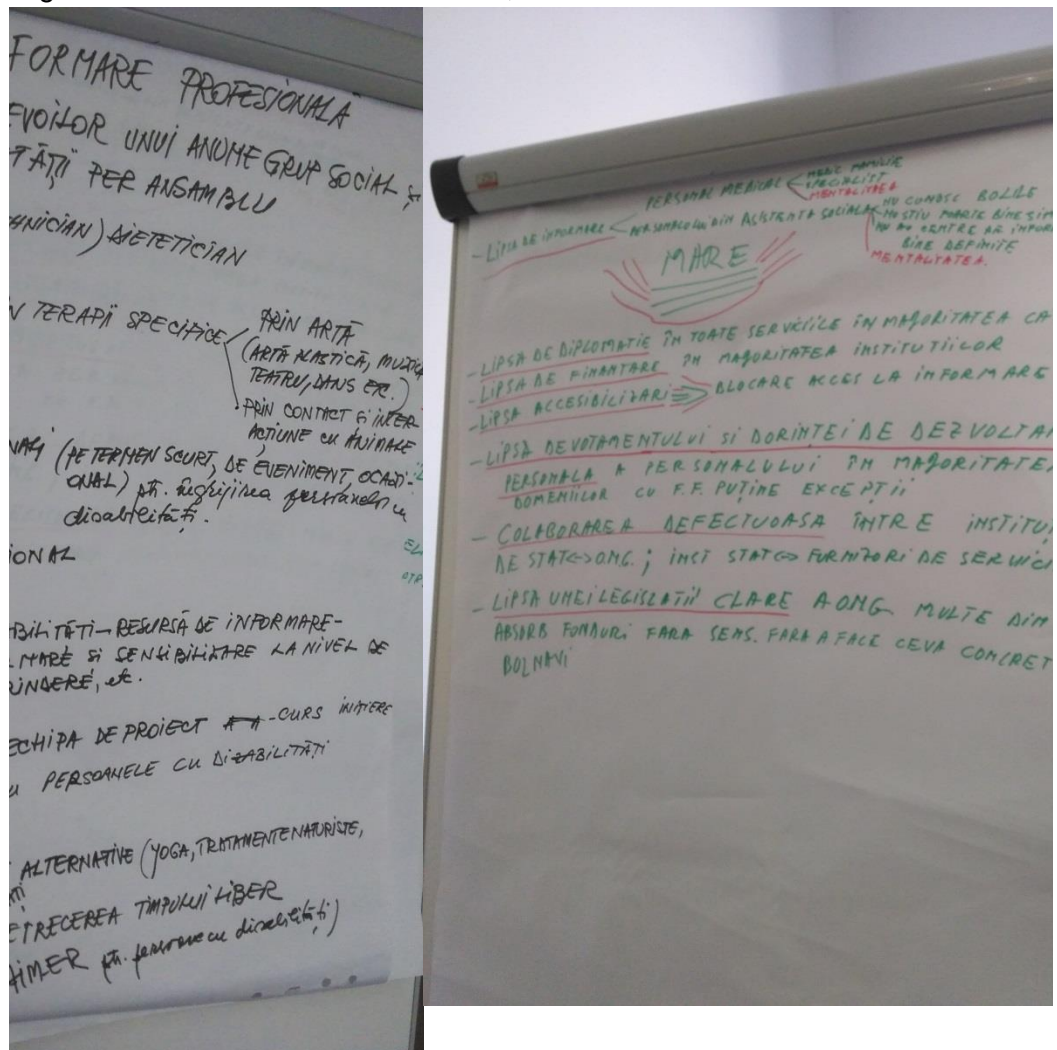 FORMARE PROFESIONALĂ
EVOILOR UNUI ANUME GRUP SOCIAL ȘI
TĂȚII PER ANSAMBLU
HNICIAN) DIETETICIAN
N TERAPII SPECIFICE
PRIN ARTĂ
(ARTĂ PLASTICĂ, MUZICĂ
TEATRU, DANS ETC.)
PRIN CONTACT ȘI INTER
ACȚIUNE CU ANIMALE
NALI (PE TERMEN SCURT, DE EVENIMENT, OCAZI-
ONAL) pt. îngrijirea persoanelor cu
disabilități.
IONAL
BILITĂȚI - RESURSĂ DE INFORMARE-
MARE ȘI SENSIBILIZARE LA NIVEL DE
RINDERE, etc.
ECHIPA DE PROIECT - CURS INIȚIERE
U PERSOANELE CU DIZABILITĂȚI
ALTERNATIVE (YOGA, TRATAMENTE NATURISTE,
ETRECEREA TIMPULUI LIBER
HIMER pt. persoane cu disabilități)
- LIPSA DE INFORMARE
PERSONAL MEDICAL
MEDIC FAMILIE
SPECIALIST
MENTALITATEA
PERSONALUL DIN ASISTENTA SOCIALA
NU CUNOSC BOLILE
NU STIU FOARTE BINE
NU AU CENTRE DE INFOR
BINE DEFINITE
MENTALITATEA.
MARE
- LIPSA DE DIPLOMATIE ÎN TOATE SERVICIILE IN MAJORITATEA CA
- LIPSA DE FINANTARE IN MAJORITATEA INSTITUTIILOR
- LIPSA ACCESIBILIZARI BLOCARE ACCES LA INFORMARE
- LIPSA DEVOTAMENTULUI SI DORINTEI DE DEZVOLTAR
PERSONALA A PERSONALULUI IN MAJORITATEA
DOMENIILOR CU F.F. PUȚINE EXCEPȚII
- COLABORAREA DEFECTUOASA ÎNTRE INSTITUȚ
DE STAT <=> O.N.G.; INST STAT <=> FURNIZORI DE SERVICI
- LIPSA UNEI LEGISLATII CLARE A ONG MULTE DIN
ABSORB FONDURI FARA SENS. FARA A FACE CEVA CONCRET
BOLNAVI